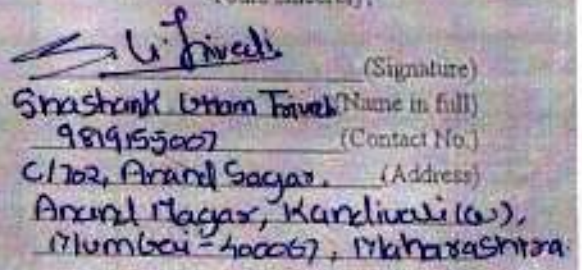 Yours sincerely,
S. U. Trivedi
(Signature)
Shashank Uttam Trivedi (Name in full)
9819155007 (Contact No.)
C/702, Anand Sagar, (Address)
Anand Nagar, Kandivali (w),
Mumbai - 400067, Maharashtra